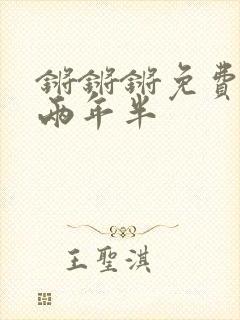 锵锵锵免費
兩年半
王聖淇